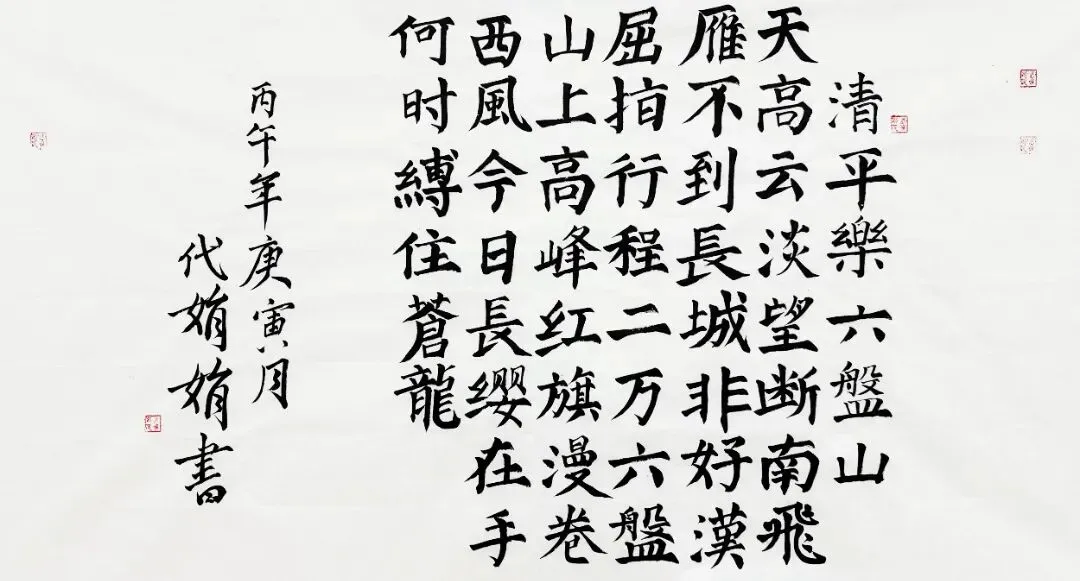 清平樂六盤山
天高云淡望断南飛
雁不到長城非好漢
屈指行程二万六盤
山上高峰红旗漫卷
西風今日長缨在手
何时縛住蒼龍
丙午年庚寅月
代娟娟書